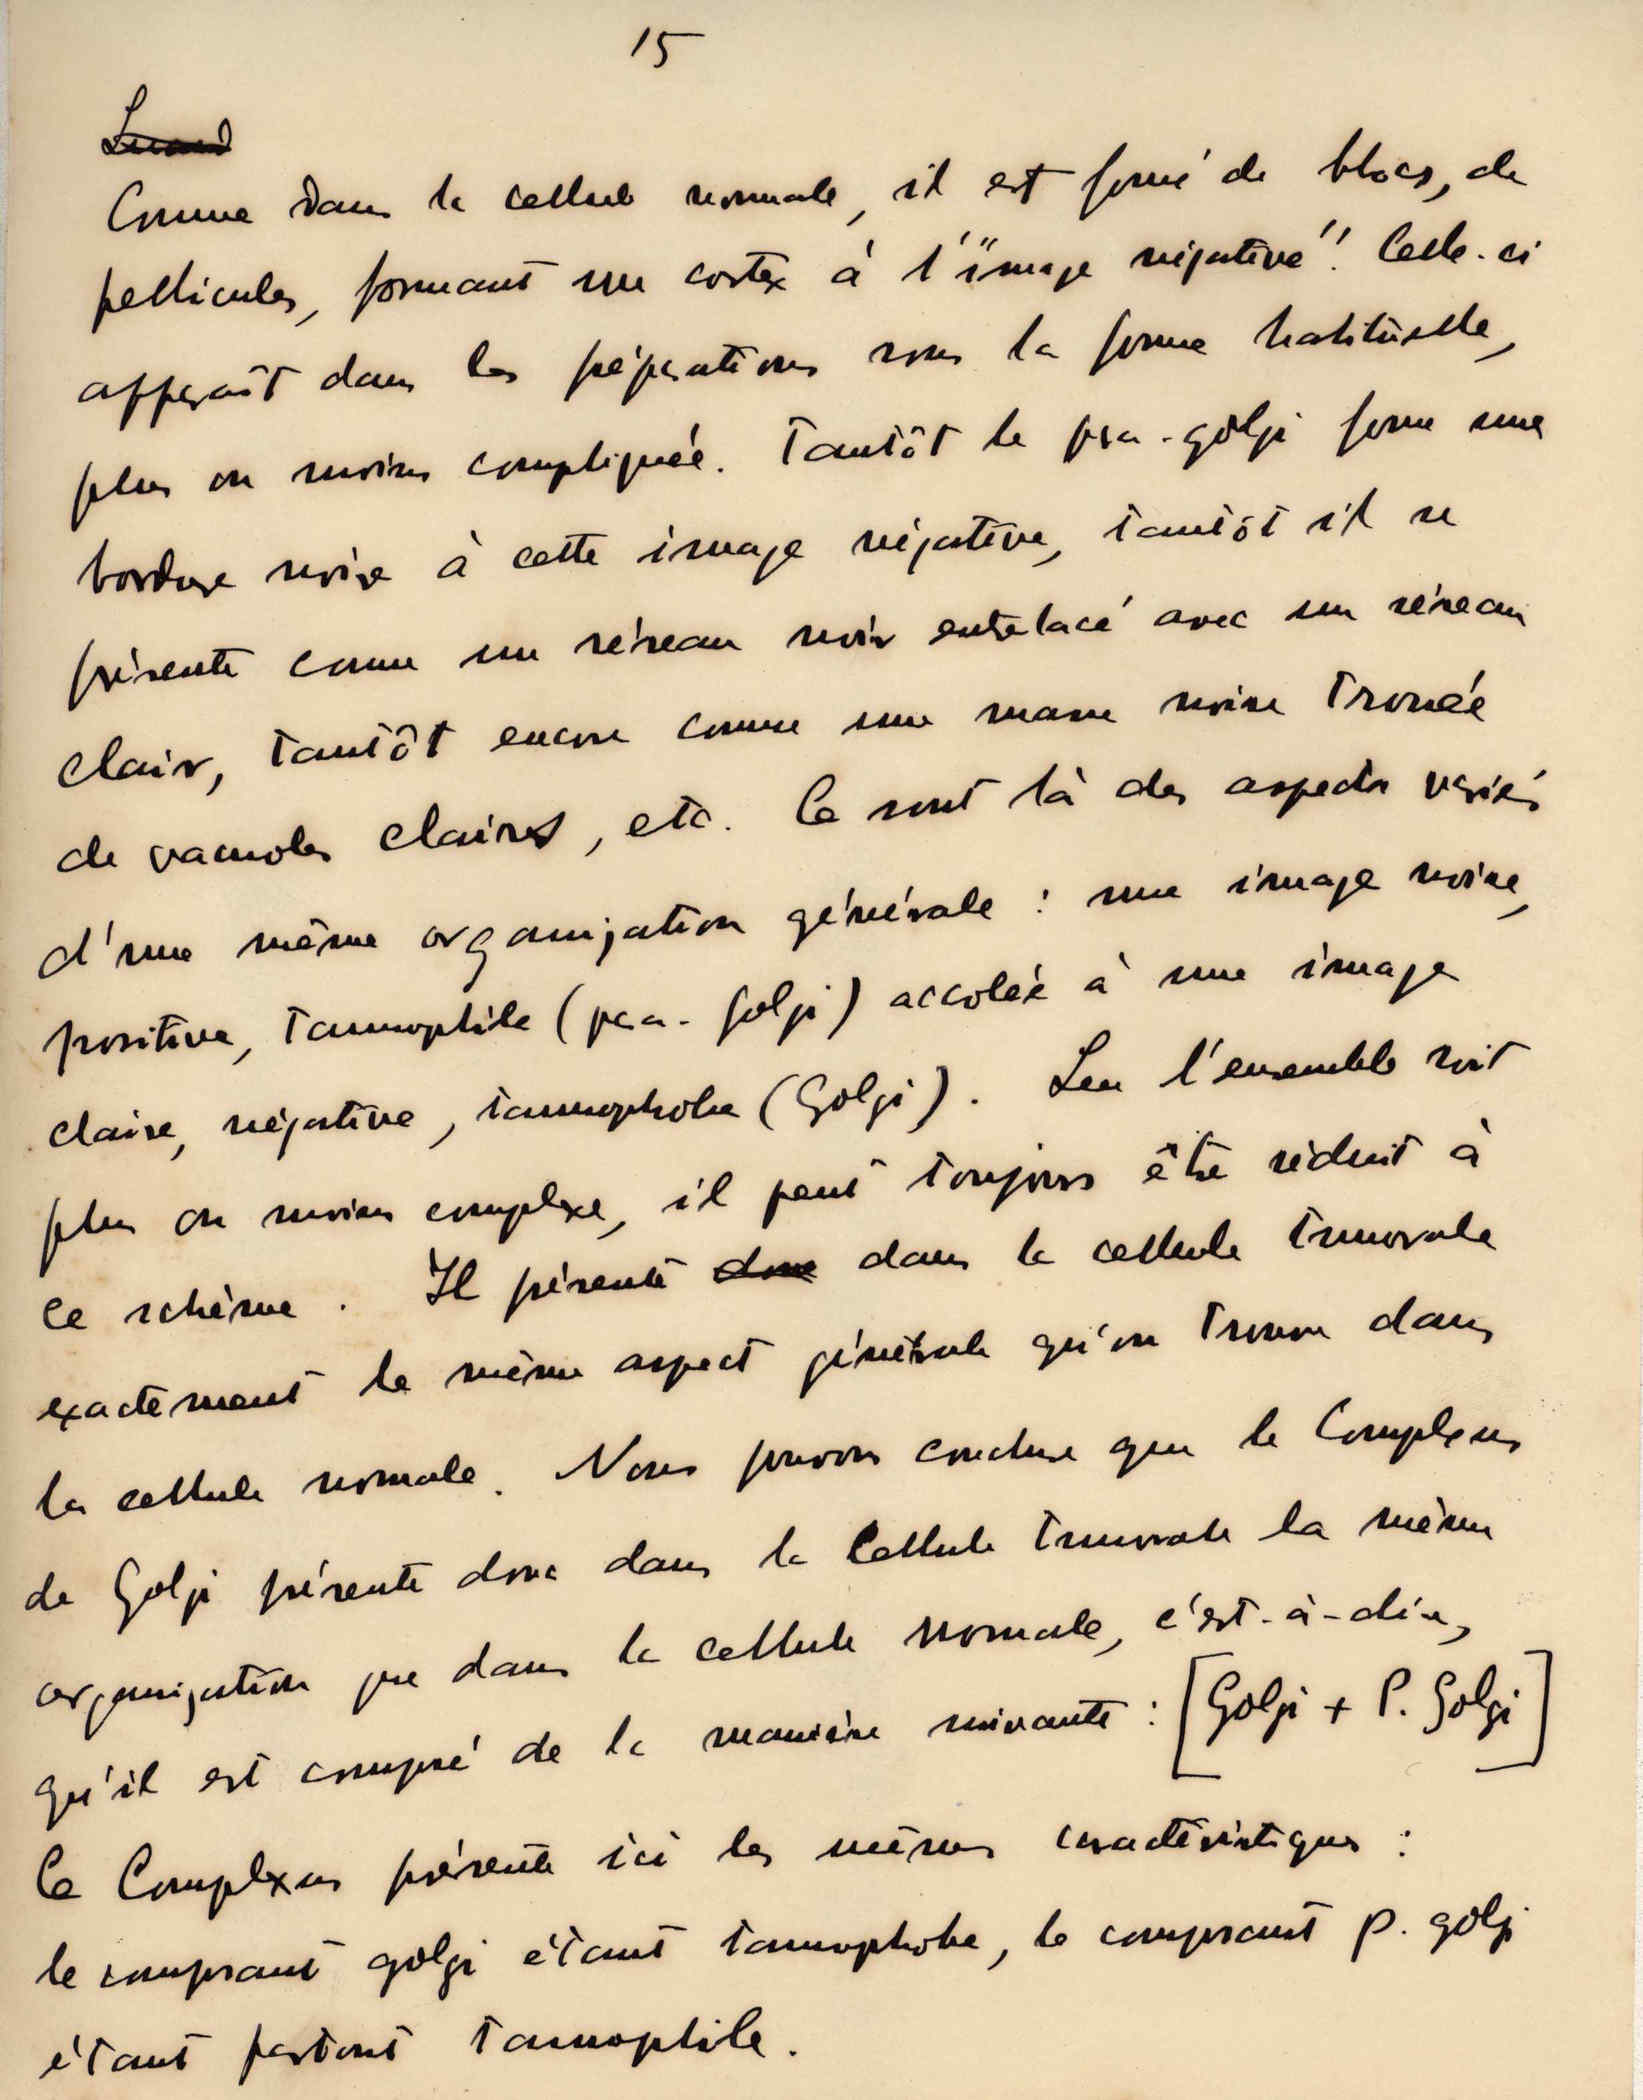 15
Comme dans la cellule normale, il est formé de blocs, de
pellicules, formant un cortex à l'"image négative". Celle-ci
apparaît dans les préparations sous la forme habituelle,
plus ou moins compliquée. Tantôt le para-golgi forme une
bordure noire à cette image négative, tantôt il se
présente comme un réseau noir entrelacé avec un réseau
clair, tantôt encore comme une masse noire trouée
de vacuoles claires, etc. Ce sont là des aspects variés
d'une même organisation générale : une image noire,
positive, tannophile (para-Golgi) accolée à une image
claire, négative, tannophobe (Golgi). Que l'ensemble soit
plus ou moins complexe, il peut toujours être réduit à
ce schème. Il présente donc dans la cellule tumorale
exactement le même aspect générale qu'on trouve dans
la cellule normale. Nous pouvons conclure que le Complexus
de Golgi présente donc dans la Cellule tumorale la même
organisation que dans la cellule normale, c'est-à-dire,
qu'il est composé de la manière suivante : [Golgi + P. Golgi]
Ce Complexus présente ici les mêmes caractéristiques :
le composant golgi étant tannophobe, le composant p. golgi
étant partout tannophile.